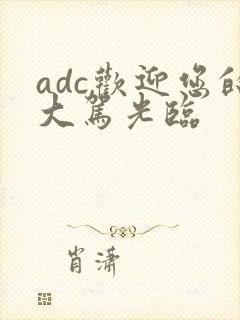 adc歡迎您的
大駕光臨
肖瀟